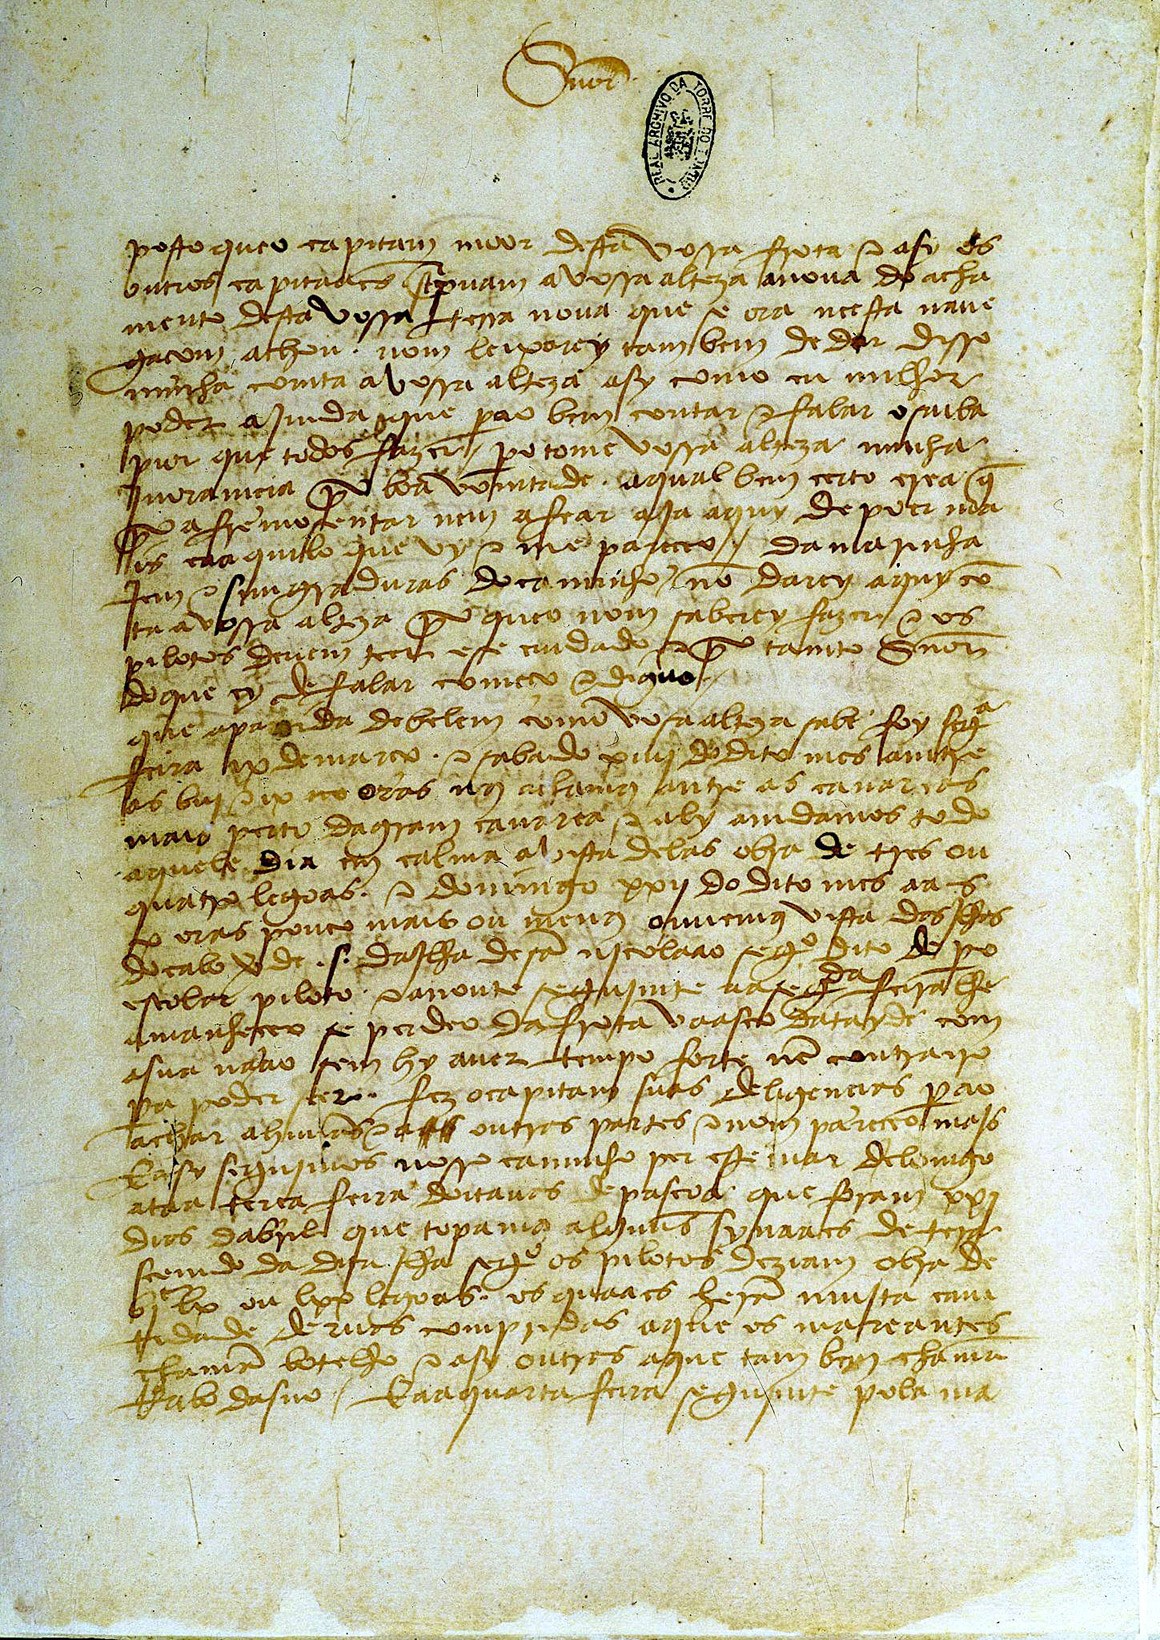 Snõr
REAL ARCHIVO DA TORRE DO TOMBO
posto queo capitam moor desta vossa frota e asy os
outros capitaães screpuam a vossa alteza anoua do acha
mento desta vossa terra noua que se ora neesta naue
gaçom achou. nom leixarey tambem de dar disso
minha comta avossa alteza asy como eu milhor
poder aimda que perao bem contar e falar o saiba
pior que todos fazer. / pero tome vossa alteza minha
inoramçia por boa vomtade. aqual bem çerto crea q̃
por afremosentar nem afear aja aquy de poer ma
is caaquilo que vy e me pareçeo. / da marinha
jem e simgraduras docaminho nõ darey aquy cõ
ta avossa alteza porqueo nom saberey fazer e os
pilotos deuem teer ese cuidado e por tamto Snõr
do que ey de falar começo e diguo. /
que apartida debelem como vosa alteza sabe foy segª
feira ix demarço. e sabado xiiij do dito mes amtre
as biij e ix oras nos achamos amtre as canareas
mais perto dagram canarea e aly amdamos todo
aquele dia em calma avista delas obra de tres ou
quatro legoas. e domingo xxij do dito mes aas
x oras pouco mais ou menos ouuemos vista dasjlhas
docabo verde .s. dajlha desã njcolaao segº dito de pero
escolar piloto. e anoute segujmte aasegda feira lhe
amanheçeo se perdeo dafrota vaasco datayde com
asua naao sem hy auer tempo forte nẽ contrairo
pera poder seer. fez ocapitam suas deligençias perao
achar ahuũas e a outras partes e nom pareçeo majs
E asy segujmos nosso caminho per este mar delomgo
ataa terça feira doitauas de pascoa que foram xxj
dias dabril que topamos alguũs synaaes de tera
seemdo da dita jlha segº os pilotos deziam obra de
bjc lx ou lxx legoas. os quaaes herã mujta cam
tidade deruas compridas aque os mareantes
chamã botelho e asy outras aque tambem chamã
Rabo dasno / E aaquarta feira segujmte pola ma